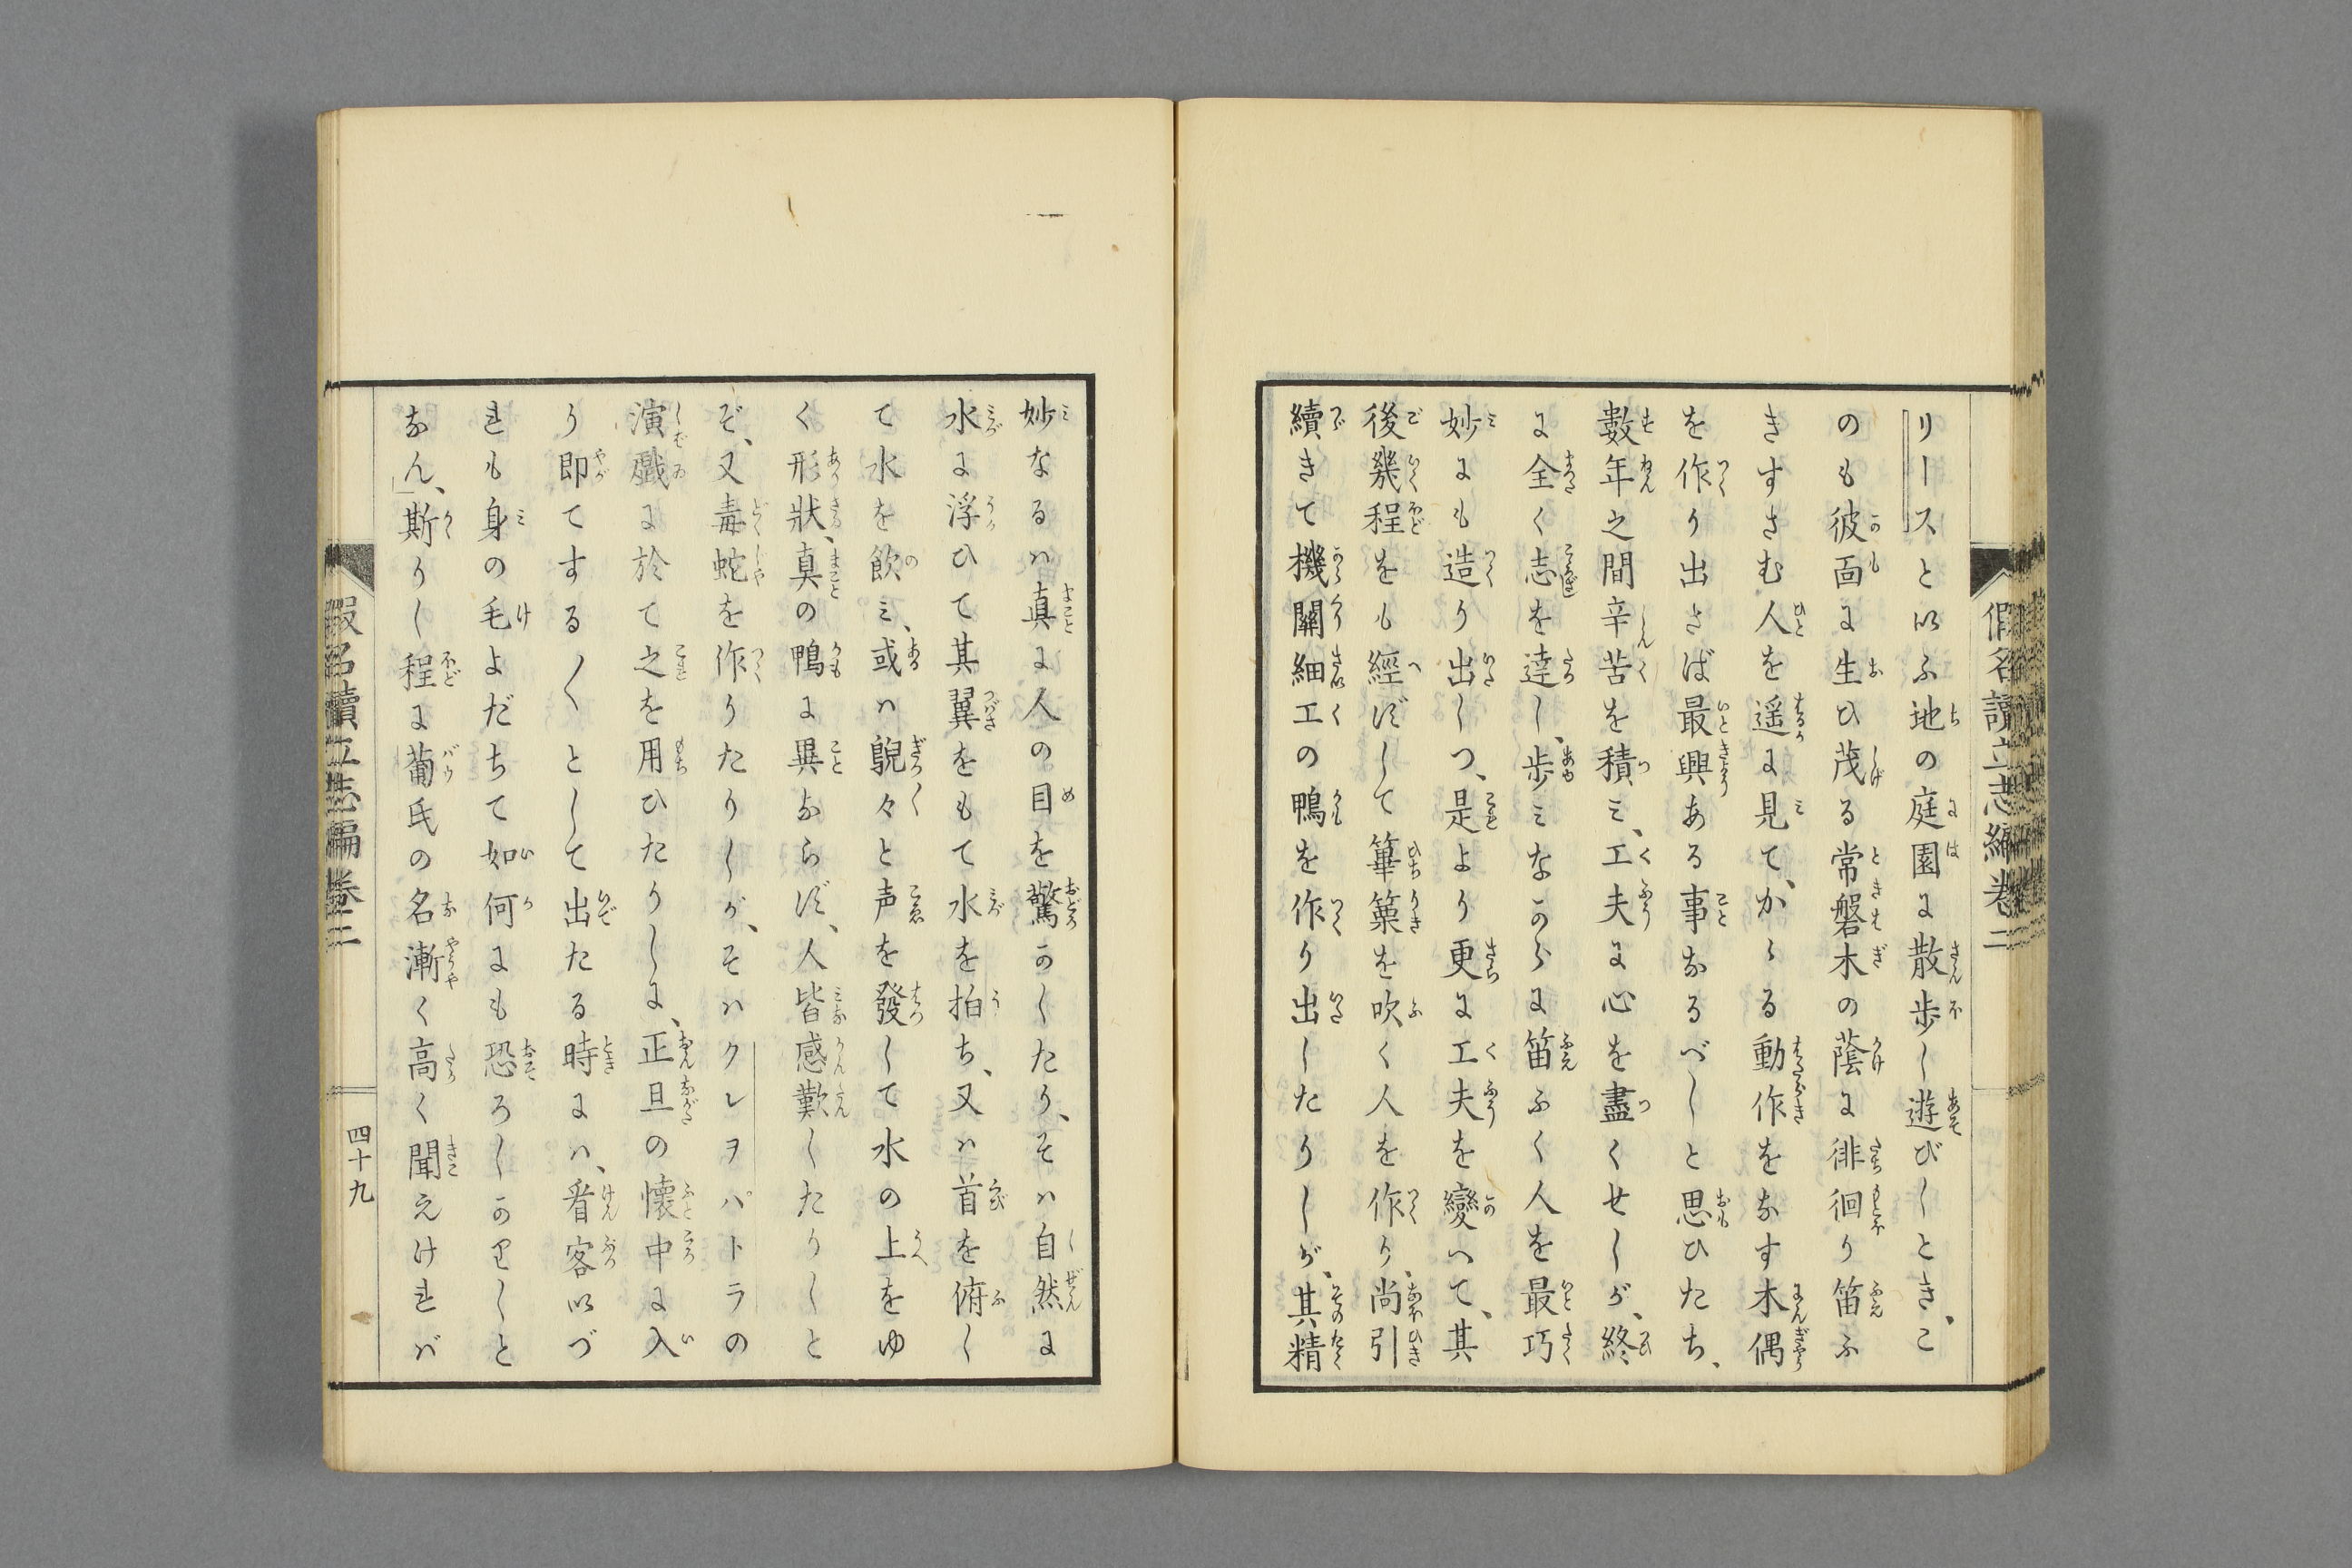 假名讀立志編卷二
リースといふ地の庭園に散歩し遊びしとき、こ
のも彼面に生ひ茂る常磐木の蔭に徘徊り笛ふ
きすさむ人を遥に見て、かゝる動作をなす木偶
を作り出さば最興ある事なるべしと思ひたち、
數年之間辛苦を積ミ、工夫に心を盡くせしが、終
に全く志を達し、歩ミながらに笛ふく人を最巧
妙にも造り出しつ、是より更に工夫を變へて、其
後幾程をも經ずして篳篥を吹く人を作り、尚引
續きて機關細工の鴨を作り出したりしが、其精
妙なるハ真に人の目を驚かしたり、そハ自然に
水に浮ひて其翼をもて水を拍ち、又ハ首を俯し
て水を飲ミ、或ハ鶃々と声を發して水の上をゆ
く形狀、真の鴨に異ならず、人皆感歎したりしと
ぞ、又毒蛇を作りたりしが、そハクレヲパトラの
演戲に於て之を用ひたりしに、正旦の懷中に入
り即てする〳〵として出たる時にハ、看客いづ
れも身の毛よだちて如何にも恐ろしかりしと
なん、」斯りし程に葡氏の名漸く高く聞えければ
假名讀立志編卷二
四十九